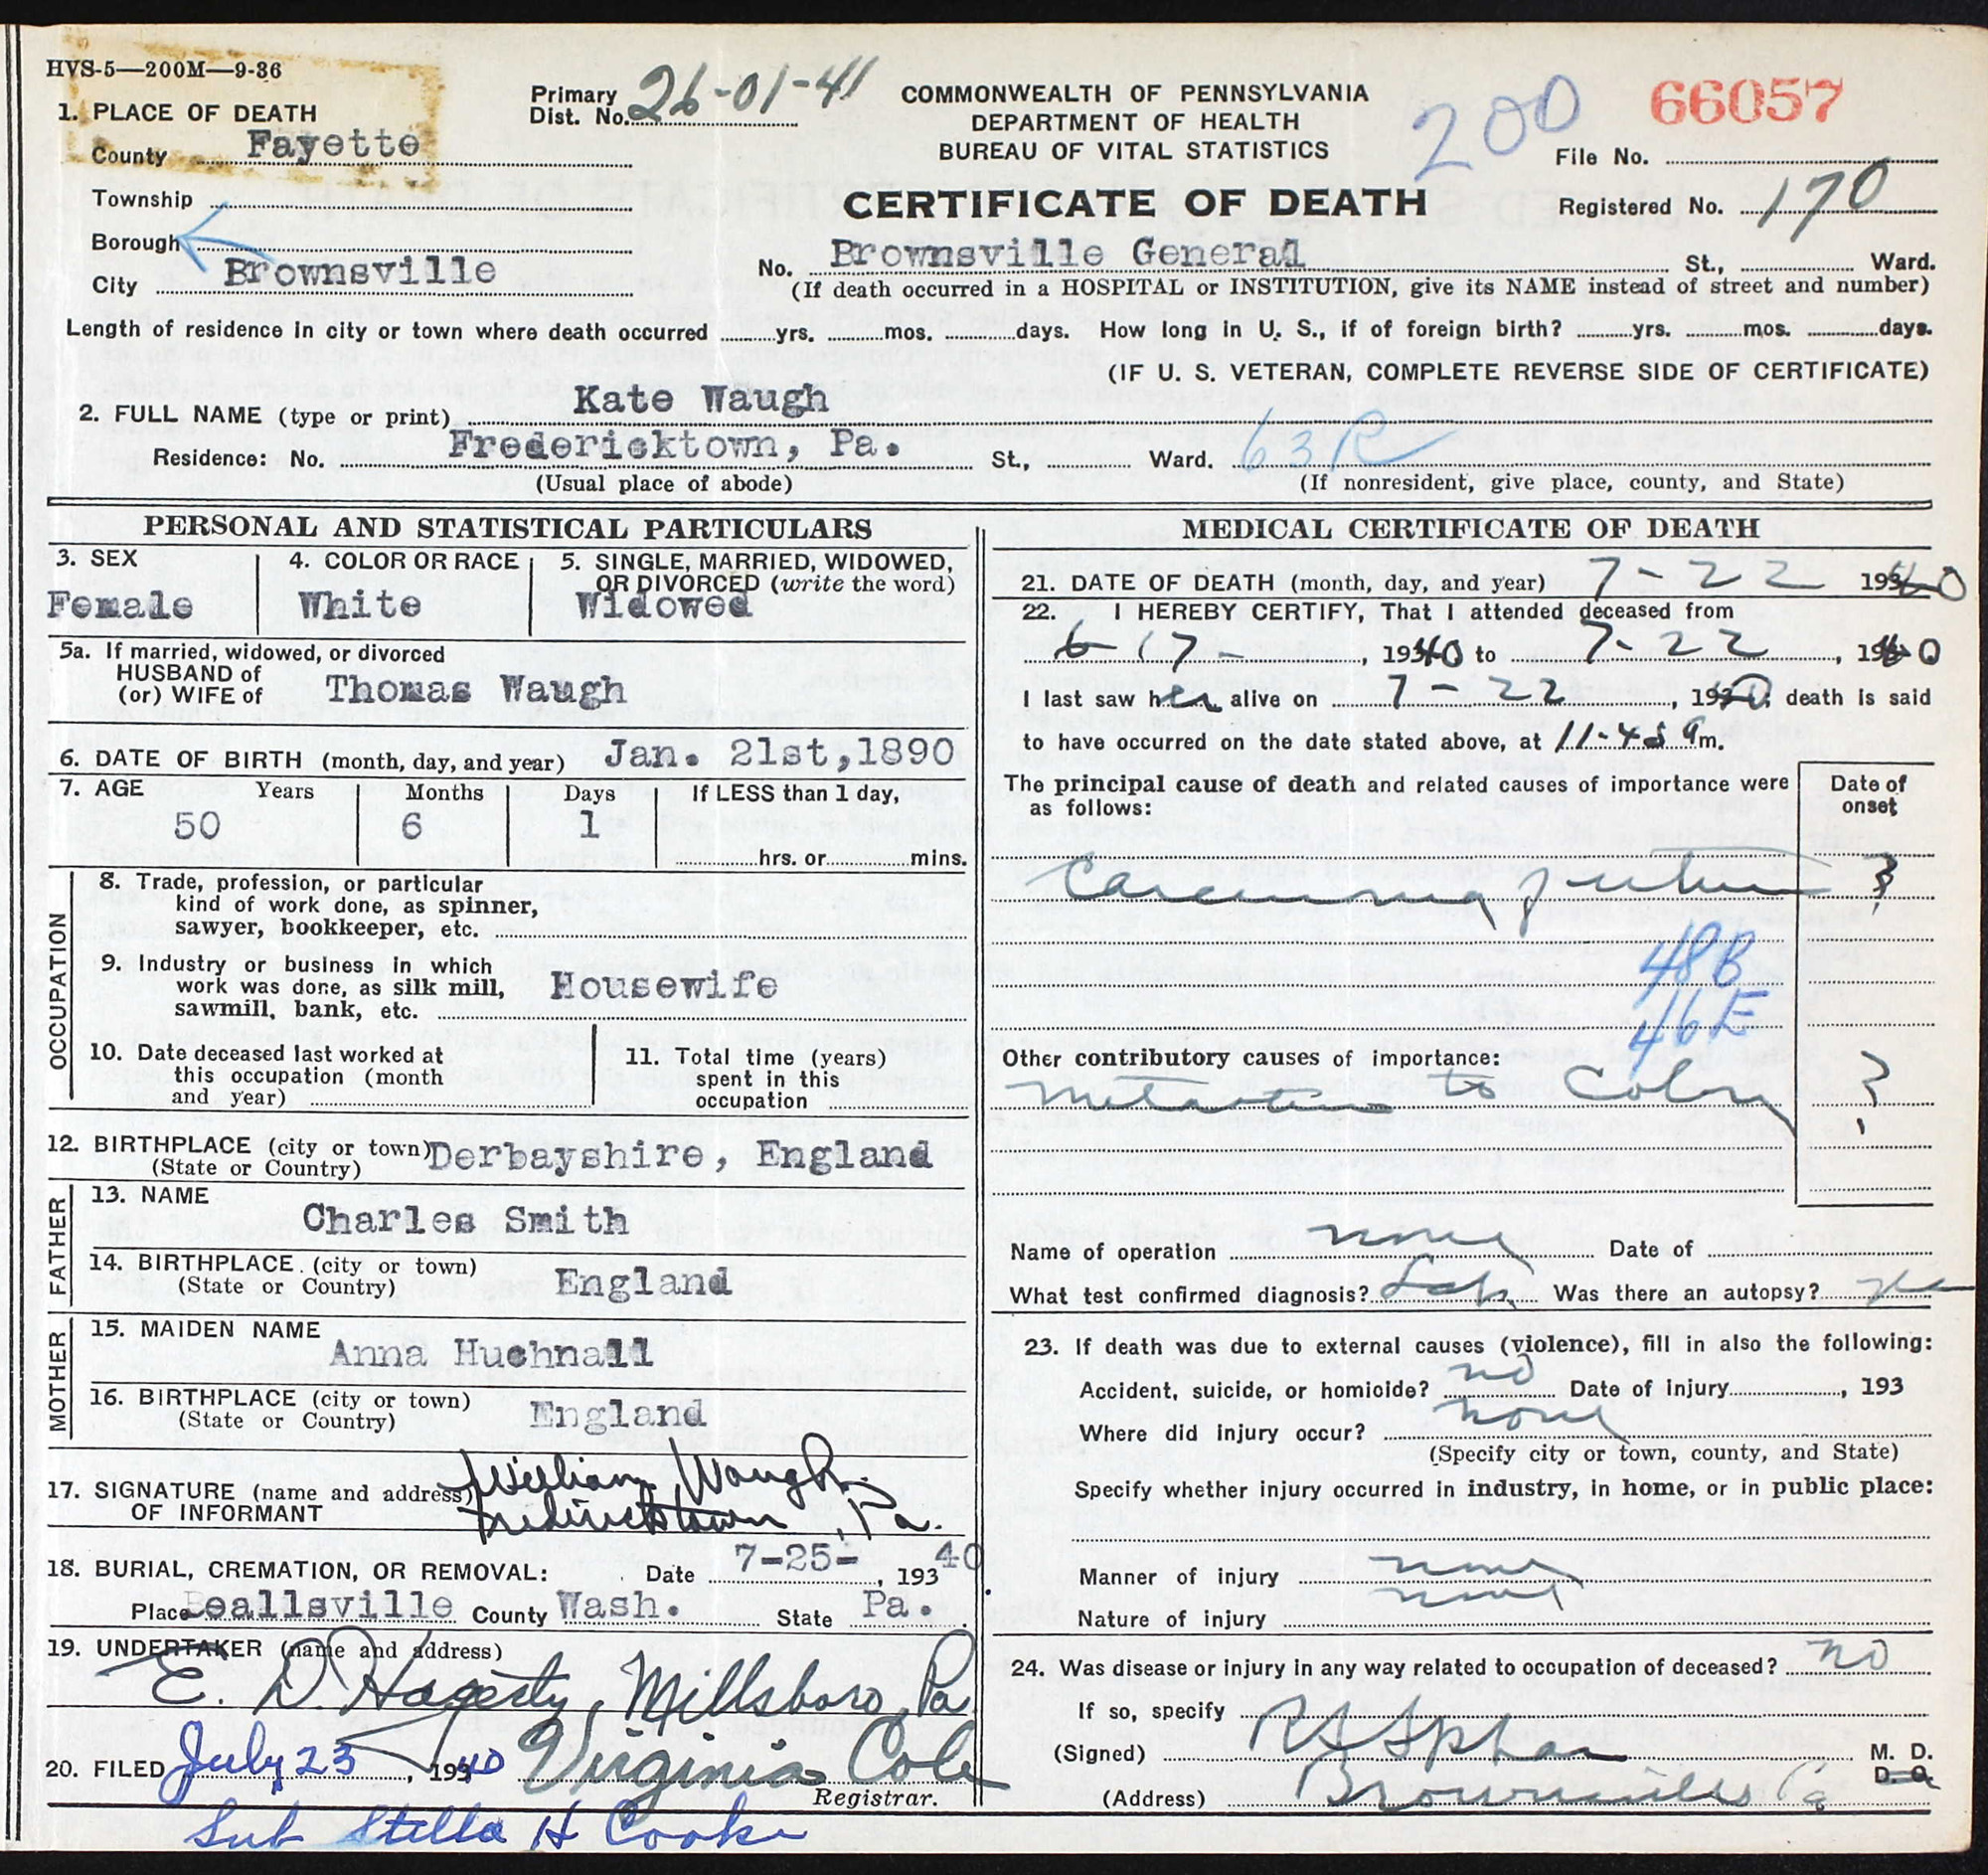 HVS-5—200M—9-36
1. PLACE OF DEATH
County Fayette
Township
Borough
City Brownsville
Primary
Dist. No. 26-01-41
COMMONWEALTH OF PENNSYLVANIA
DEPARTMENT OF HEALTH
BUREAU OF VITAL STATISTICS
CERTIFICATE OF DEATH
200
66057
File No.
Registered No. 170
No. Brownsville General St., Ward.
(If death occurred in a HOSPITAL or INSTITUTION, give its NAME instead of street and number)
Length of residence in city or town where death occurred yrs. mos. days. How long in U. S., if of foreign birth? yrs. mos. days.
(IF U. S. VETERAN, COMPLETE REVERSE SIDE OF CERTIFICATE)
2. FULL NAME (type or print) Kate Waugh
Residence: No. Fredericktown, Pa. St., Ward. 63R
(Usual place of abode) (If nonresident, give place, county, and State)
PERSONAL AND STATISTICAL PARTICULARS
3. SEX
Female
4. COLOR OR RACE
White
5. SINGLE, MARRIED, WIDOWED,
OR DIVORCED (write the word)
Widowed
5a. If married, widowed, or divorced
HUSBAND of
(or) WIFE of Thomas Waugh
6. DATE OF BIRTH (month, day, and year) Jan. 21st,1890
7. AGE Years Months Days If LESS than 1 day,
50 6 1
hrs. or mins.
OCCUPATION
8. Trade, profession, or particular
kind of work done, as spinner,
sawyer, bookkeeper, etc.
9. Industry or business in which
work was done, as silk mill,
sawmill, bank, etc. Housewife
10. Date deceased last worked at
this occupation (month
and year)
11. Total time (years)
spent in this
occupation
12. BIRTHPLACE (city or town) Derbayshire, England
(State or Country)
FATHER
13. NAME
Charles Smith
14. BIRTHPLACE (city or town)
(State or Country) England
MOTHER
15. MAIDEN NAME
Anna Huchnall
16. BIRTHPLACE (city or town)
(State or Country) England
17. SIGNATURE (name and address) William Waugh
OF INFORMANT Fredericktown, Pa.
18. BURIAL, CREMATION, OR REMOVAL: Date 7-25-, 193 40
Place Beallsville County Wash. State Pa.
19. UNDERTAKER (name and address)
E. D. Hagerty, Millsboro, Pa
20. FILED July 23, 1940 Virginia Cole
Registrar.
Sub Stella H Cooke
MEDICAL CERTIFICATE OF DEATH
21. DATE OF DEATH (month, day, and year) 7-22 1940
22. I HEREBY CERTIFY, That I attended deceased from
6-17-, 1940 to 7-22, 1940
I last saw her alive on 7-22, 1940; death is said
to have occurred on the date stated above, at 11-45 a m.
The principal cause of death and related causes of importance were
as follows:
Date of
onset
Carcinoma of uterus ?
48B
46E
Other contributory causes of importance:
Metastasis to Colon ?
Name of operation none Date of
What test confirmed diagnosis? Lab. Was there an autopsy?
23. If death was due to external causes (violence), fill in also the following:
Accident, suicide, or homicide? no Date of injury , 193
Where did injury occur? none
(Specify city or town, county, and State)
Specify whether injury occurred in industry, in home, or in public place:
Manner of injury none
Nature of injury none
24. Was disease or injury in any way related to occupation of deceased? no
If so, specify
(Signed) M. D.
D. O.
(Address) Brownsville Pa